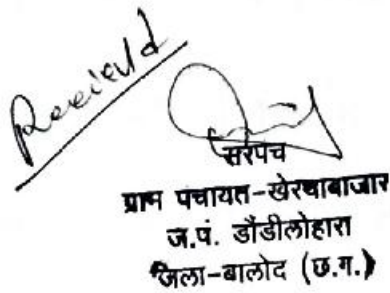 Received
सरपंच
ग्राम पंचायत-खेरथाबाजार
ज.पं. डौंडीलोहारा
जिला-बालोद (छ.ग.)